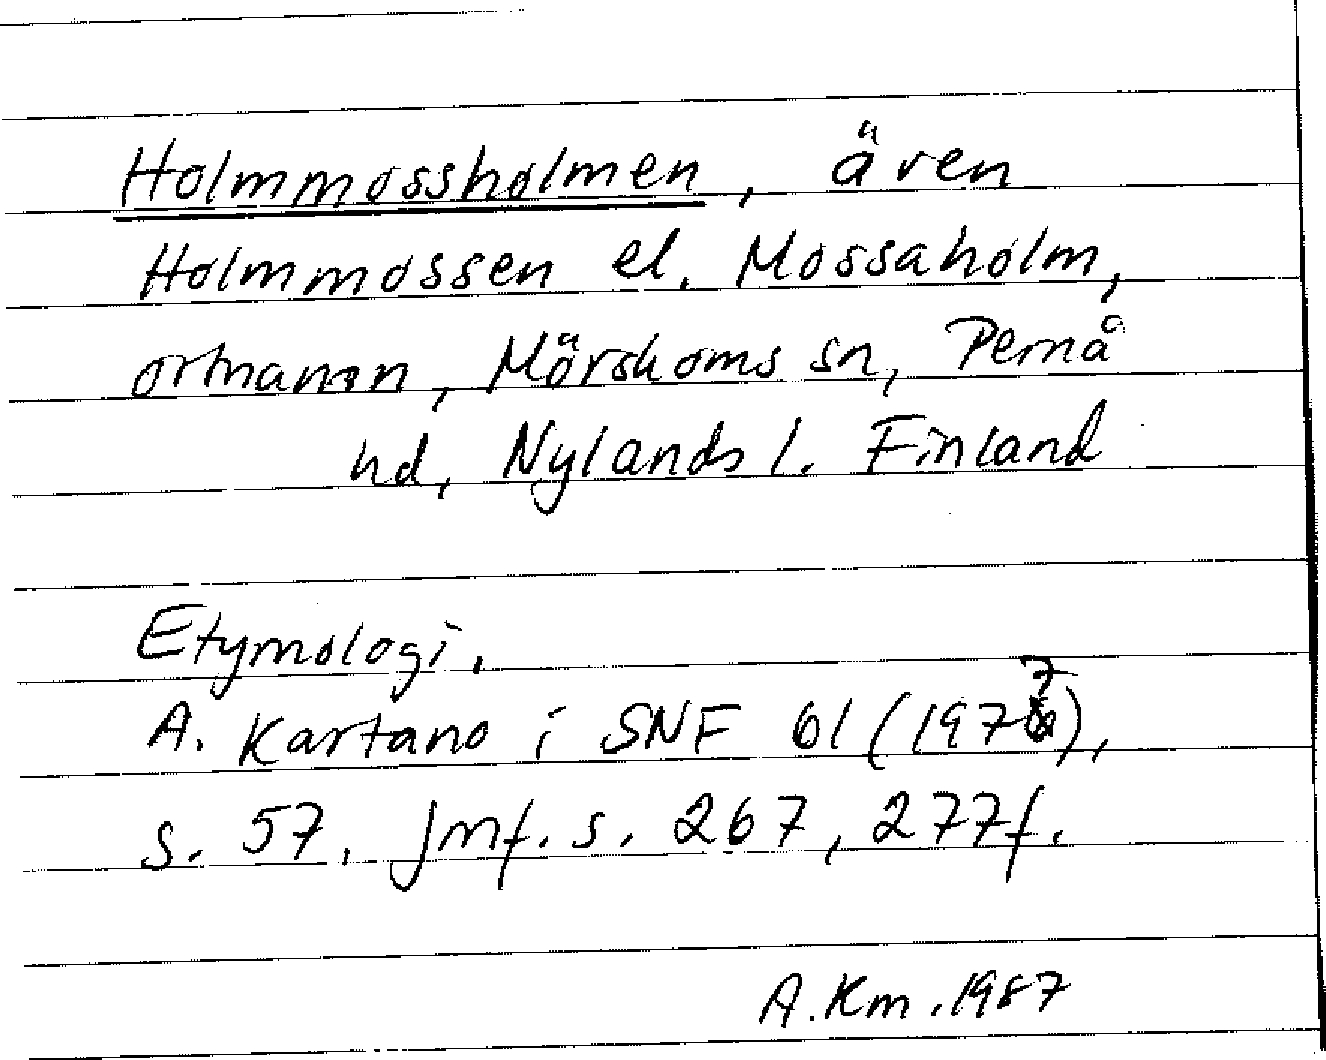 Holmmossholmen, även
Holmmossen el. Mossaholm,
ortnamn, Mörskoms sn, Pernå
hd, Nylands l. Finland
Etymologi.
A. Kartano i SNF 61 (1977),
s. 57. Jmf. s. 267, 277f.
A.Km.1987